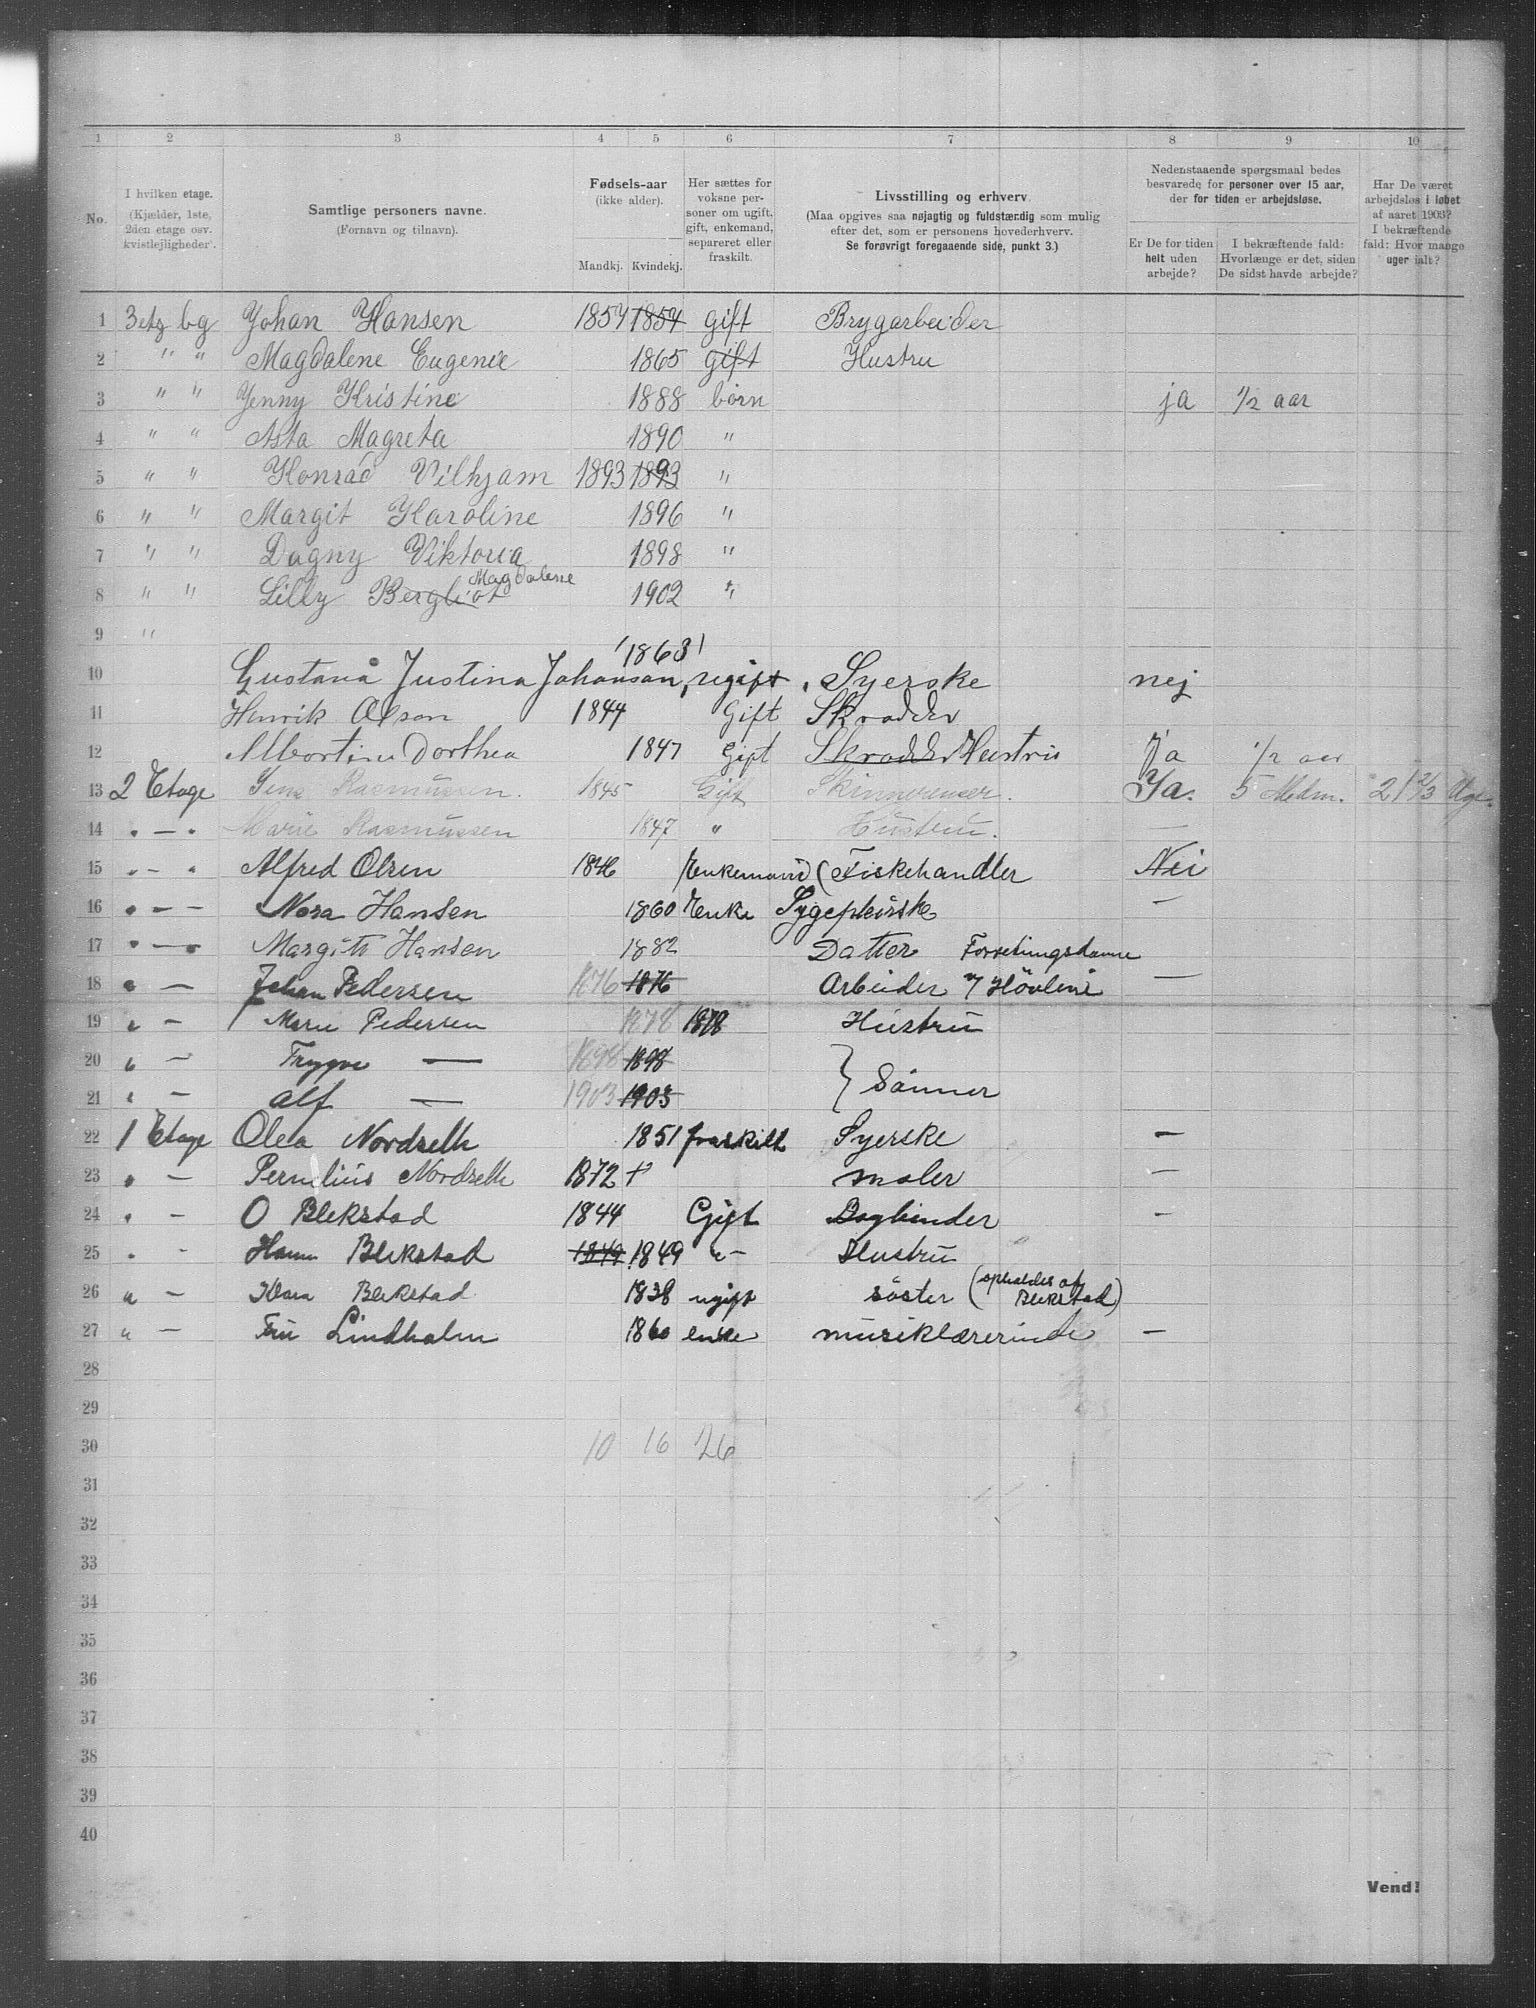 1 2 3 4 5 6 7 8 9 10
No.
I hvilken etage.
(Kjælder, 1ste,
2den etage osv.
kvistlejligheder).
Samtlige personers navne.
(Fornavn og tilnavn).
Fødsels-aar
(ikke alder).
Mandkj. Kvindekj.
Her sættes for
voksne per-
soner om ugift,
gift, enkemand,
separeret eller
fraskilt.
Livsstilling og erhverv.
(Maa opgives saa nøjagtig og fuldstændig som mulig
efter det, som er personens hovederhverv.
Se forøvrigt foregaaende side, punkt 3.)
Nedenstaaende spørgsmaal bedes
besvarede for personer over 15 aar,
der for tiden er arbejdsløse.
Er De for tiden
helt uden
arbejde?
I bekræftende fald:
Hvorlænge er det, siden
De sidst havde arbejde?
Har De været
arbejdsløs i løbet
af aaret 1903?
I bekræftende
fald: Hvor mange
uger ialt?
1 3 etg bg Johan Hansen 1854 1854 gift Brygarbeider
2 " " Magdalene Eugenie 1865 gift Hustru
3 " " Jenny Kristine 1888 børn ja 1/2 aar
4 " " Asta Magreta 1890 "
5 " " Konrad Vilhjam 1893 1893 "
6 " " Margit Karoline 1896 "
7 " " Dagny Viktoria 1898 "
8 " " Lilly Bergliot Magdalene 1902 "
9 "
10 Gustava Justina Johanson 1863 ugift Syerske nej
11 Henrik Olson 1844 Gift Skrædder
12 Albertine Dorthea 1847 Gift Skrædder Hustru Ja 1/2 aar
13 2 Etage Jens Rasmussen. 1845 Gift Ya. 5 21 2/3 Uger
14 " — " Marie Rasmussen 1847 " Hustru. —
15 " - " Alfred Olsen 1846 Enkemand (Fiskehandler Nei
16 " — — Nora Hansen 1860 Enke Sygepleirske —
17 " — " Margith Hansen 1882 Datter Forretningsdame
18 " — Johan Pedersen 1876 1876 Arbeider v/ Hövleri —
19 " — Marie Pedersen 1878 1878 Hustru
20 " — Trygve — 1898 1898
21 " — Alf — 1903 1903 } Sönner
22 1 Etage Olea Nordseth 1851 fraskilt Syerske —
23 " — Pernelius Nordseth 1872 maler —
24 " — O Blekstad 1844 Gift Bogbinder —
25 " - Hanna Blekstad 1849 1849 " — Hustru
26 " — Klara Blekstad 1838 ugift söster (opholdes af Blekstad)
27 " — Fru Lindholm 1860 enke musiklærerinde —
28
29
30 10 16 26
31
32
33
34
35
36
37
38
39
40
Vend!